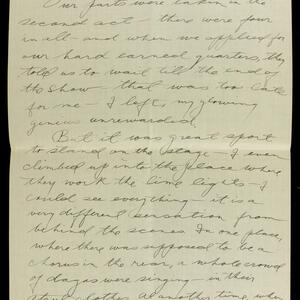 Our parts were taken in the
second act - there were four
in all - and when we applied for
our hard earned quarters, they
told us to wait till the end of
the show - that was too late
for me - I left, my glowing
genius unrewarded.
But it was great sport
to stand on the stage - I even
climbed up into the place where
they work the lime lights - I
could see everything - it is a
very different sensation from
behind the scenes. In one place,
where there was supposed to be a
chorus in the rear, a whole crowd
of dagos were singing - in their
clothes. At another time, when